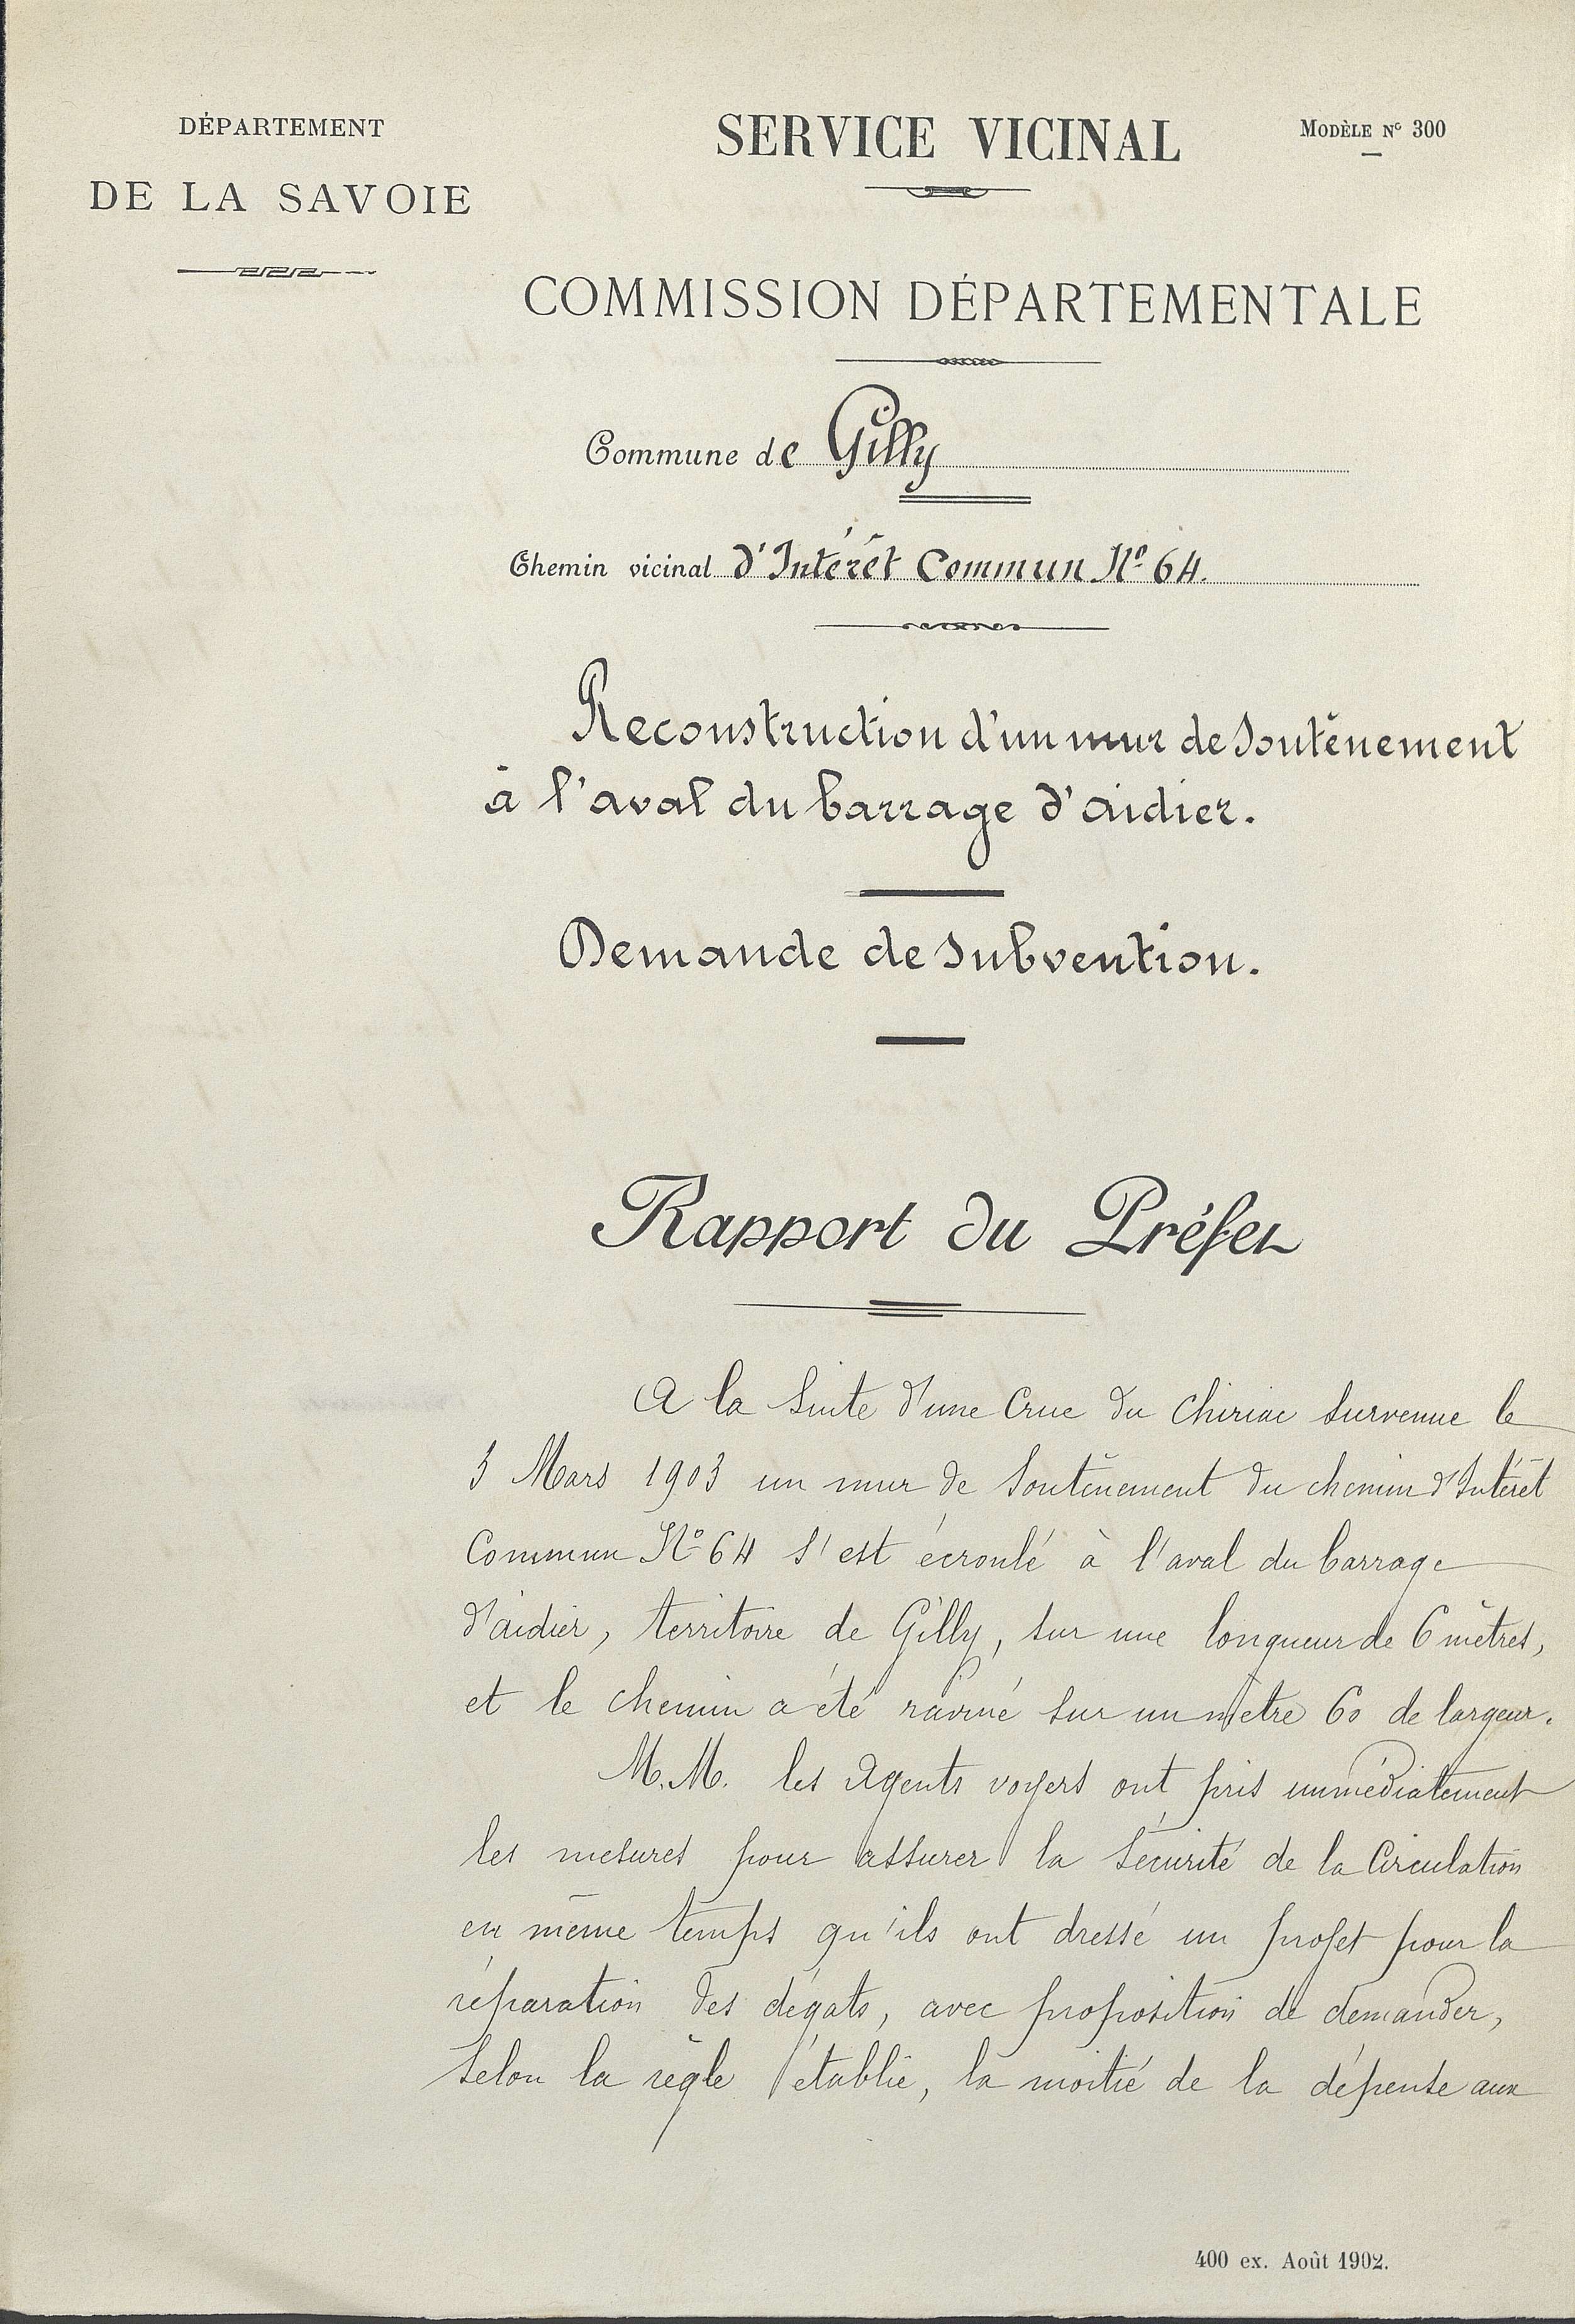 DÉPARTEMENT
DE LA SAVOIE
SERVICE VICINAL
MODÈLE No 300
COMMISSION DÉPARTEMENTALE
Commune de Gilly
Chemin vicinal d'Intérêt Commun No 64.
Reconstruction d'un mur de Soutènement
à l'aval du barrage d'aidier.
Demande de Subvention.
Rapport du Préfet
A la Suite d'une Crue du Chiriac Survenue le
3 Mars 1903 un mur de Soutènement du chemin d'Intérêt
Commun No 64 s'est écroulé à l'aval du barrage
d'aidier, territoire de Gilly, sur une longueur de 6 mètres,
et le chemin a été raviné sur un mètre 60 de largeur.
M.M. les Agents voyers ont pris immédiatement
les mesures pour assurer la Sécurité de la Circulation
en même temps qu'ils ont dressé un projet pour la
réparation des dégats, avec proposition de demander,
Selon la règle établie, la moitié de la dépense aux
400 ex. Août 1902.